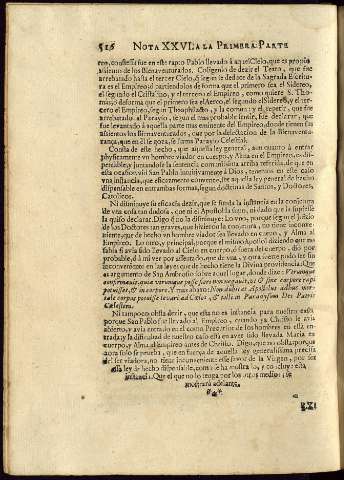 516 NOTA XXVI. A LA PRIMERA PARTE
reo, conste que fue en este rapto Pablo llevado à aquel Cielo, que es propio
assiento de los Bienaventurados. Coligenlo de dezir el Texto, que fue
arrebatado hasta el tercer Cielo, y segun se deduce de la Sagrada Escritu-
ra es el Empireo, ò partiendolos de forma que el primero sea el Sidereo,
el segundo el Cristalino, y el tercero el Empireo, como quiere S. Tho-
mas, ò de forma que el primero sea el Aereo, el segundo el Sidereo, y el ter-
cero el Empireo, segun Theophilacto, y la comun; y el repetir, que fue
arrebatado al Parayso, se por el mas probable sentir, fue declarar, que
fue levantado à aquella parte mas eminente del Empireo, donde tienen su
assiento los Bienaventurados, que por la delectacion de la Bienaventu-
rança, que en èl se goza, se llama Parayso Celestial.
Consta de este hecho, que aquella ley general, aun quanto à entrar
physicamente vn hombre viador en cuerpo, y Alma en el Empireo, es dis-
pensable; y juntandose la sentencia comunissima arriba referida, de que en
esta ocasion viò San Pablo intuitivamente à Dios, tenemos en este caso
vna instancia, que eficazmente convence, ser aquella ley general de hecho
dispensable en entrambas formas, segun doctrinas de Santos, y Doctores,
Catolicos.
Ni disminuye su eficacia dezir, que se funda la instancia en la conjetura
de vna cosa tan dudosa, que ni el Apostol la supo, ni dado que la supiesse
la quiso declarar. Digo no la disminuye: Lo vno, porque segun el juizio
de los Doctores tan graves, que hizieron la conjetura, no tiene inconve-
niente, que de hecho vn hombre viador sea llevado en cuerpo, y Alma al
Empireo. Lo otro, y principal, porque el mismo Apostol diziendo que no
sabia si avia sido llevado al Cielo en cuerpo, ò fuera del cuerpo, diò por
probable, ò à mi ver por assentado, que de vna, y otra suerte pudo ser sin
inconveniente en las leyes que de hecho tiene la Divina providencia: Que
es argumento de San Ambrosio sobre aquel lugar, donde dize: Verumque
confirmavit, quia verumque posse facere non negavit, vt & sine corpore rapi
potuisset, & in corpore. Y mas abaxo: Non dubitat Apostolus adhuc mor-
tale corpus potuisse levari ad Cælos, & tolli in Paradysum Dei Patris
Cœlestem.
Ni tampoco obsta dezir, que esta no es instancia para nuestro caso,
porque San Pablo fue llevado al Empireo, quando ya Christo le avia
abierto, y avia entrado en èl como Precursor de los hombres en esta en-
trada, y la dificultad de nuestro caso està en aver sido llevada Maria en
cuerpo, y Alma al Empireo antes de Christo. Digo, que no obsta, porque
aora solo se prueba, que en fuerça de aquella ley generalissima precisa
del ser viadora, no tiene inconveniente el favor de la Virgen, por ser
essa ley de hecho dispensable, como se ha mostrado, y concluye esta
instancia. Que el que no le tenga por los otros medios, se
mostrarà adelante.